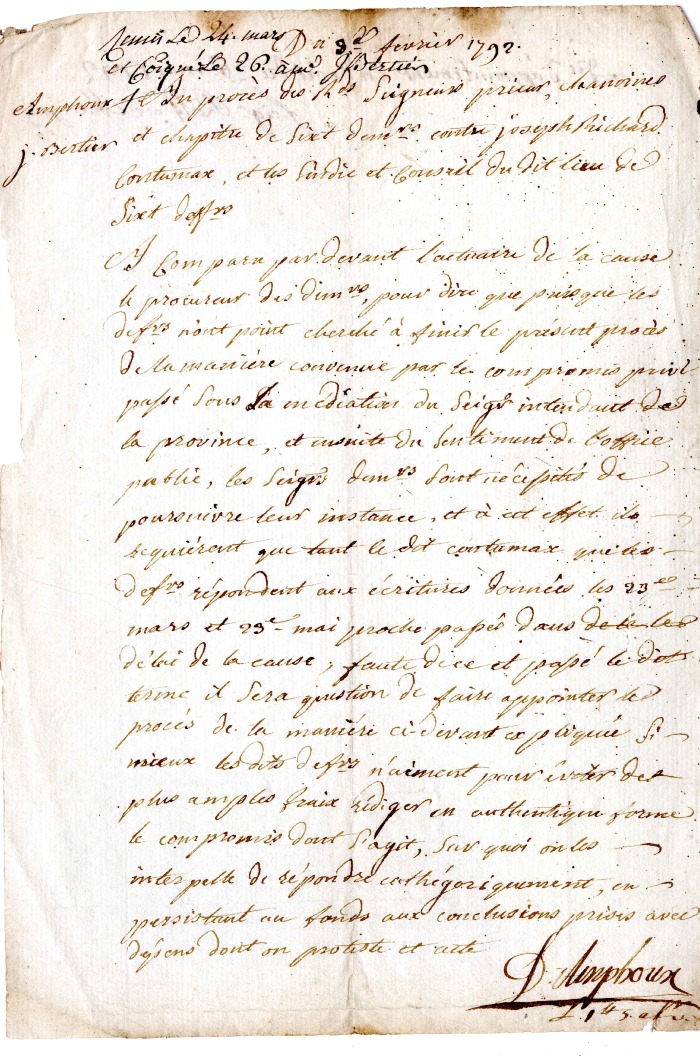 Remis Le 24. mars Du 3e février 1792.
et Coigné Le 26. JBertier
Amphoux Du procès des Rds Seigneurs prieur, chanoines
j. Bertier et chapitre de Sixt demrs contre joseph Richard
Contumax, et les Sindic et Conseil du dit lieu de
Sixt deffrs
A Comparu par devant l'actuaire de la cause
le procureur des demrs, pour dire que puisque les
deffrs n'ont point cherché à finir le présent procès
de la manière convenue par le compromis privé
passé sous la médiation du Seigr intendant de
la province, et ensuite du sentiment de l'office
public, les Seigrs demrs sont nécessités de
poursuivre leur instance, et à cet effet ils
requièrent que tant le dit contumax que les
deffrs répondent aux écritures données les 23e
mars et 23e mai proche passés dans le
délai de la cause, faute de ce et passé le dit
terme il sera question de faire appointer le
procès de la manière ci-devant expliquée si
mieux lesdits deffrs n'aiment pour éviter de
plus amples fraix rédiger en authentique forme
le compromis dont s'agit, sur quoi on les
interpelle de répondre cathégoriquement, en
persistant au fonds aux conclusions prises avec
dépens dont on proteste et acte
D. Amphoux